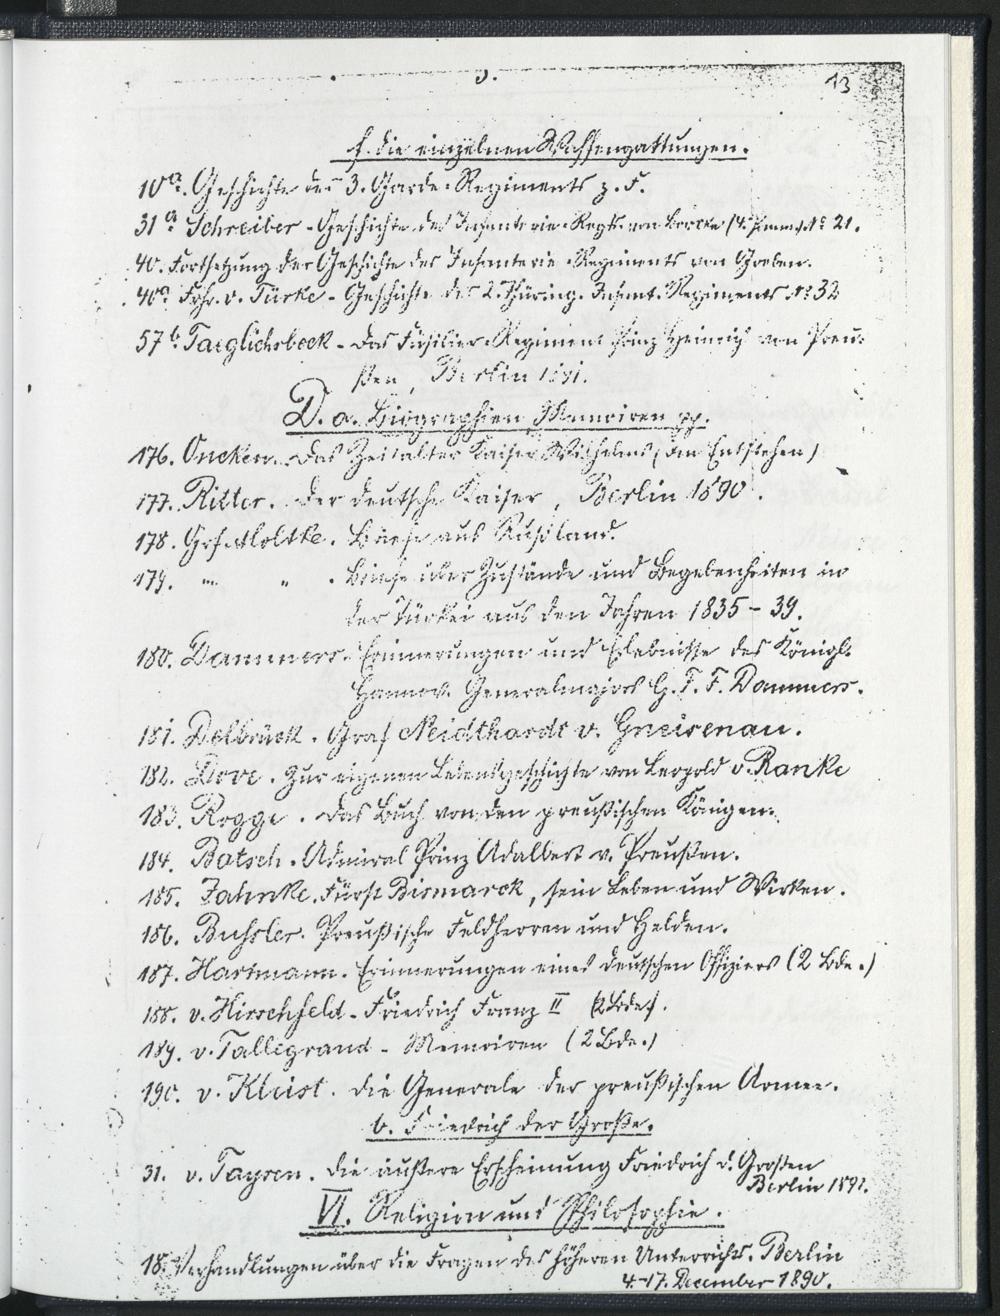 5.
13
f. die einzelnen Waffengattungen.
10a. Geschichte des 3. Garde-Regiments z. F.
31a Schreiber - Geschichte des Infanterie-Regts. von Borcke (4. Pomm.) No 21.
40. Fortsetzung der Geschichte des Infanterie-Regiments von Goeben.
40a Frhr. v. Türke - Geschichte des 2. Thüring. Infant. Regiments No 32
57b. Taeglichsbeck - Das Füsilier-Regiment Prinz Heinrich von Preu-
ßen, Berlin 1891.
D. a. Biographien, Memoiren pp.
176. Oncken. Das Zeitalter Kaiser Wilhelms (im Entstehen)
177. Ritter. Der deutsche Kaiser, Berlin 1890.
178. Grf. Moltke. Briefe aus Rußland.
179. " " . Briefe über Zustände und Begebenheiten in
der Türkei aus den Jahren 1835-39.
180. Dammers. Erinnerungen und Erlebnisse des Königl.
Hannov. Generalmajors G. F. F. Dammers.
181. Delbrück. Graf Neidthardt v. Gneisenau.
182. Dove. Zur eigenen Lebensgeschichte von Leopold v. Ranke
183. Rogge. Das Buch von den preußischen Königen.
184. Batsch. Admiral Prinz Adalbert v. Preußen.
185. Jahnke. Fürst Bismarck, sein Leben und Wirken.
186. Bußler. Preußische Feldherren und Helden.
187. Hartmann. Erinnerungen eines deutschen Offiziers (2 Bde.)
188. v. Hirschfeld - Friedrich Franz II (2 Bde).
189. v. Tallegrand - Memoiren (2 Bde.)
190. v. Kleist. Die Generale der preußischen Armee.
b. Friedrich der Große.
31. v. Taysen. Die äußere Erscheinung Friedrich d. Großen
Berlin 1891.
VI. Religion und Philosophie.
18. Verhandlungen über die Fragen des höheren Unterrichts. Berlin
4.-17. December 1890.